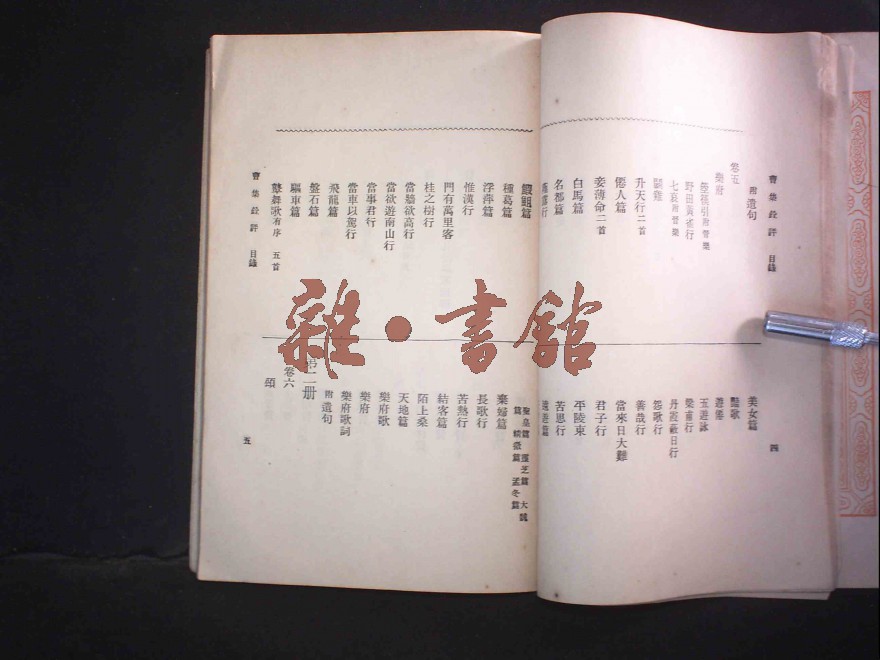 曹集銓評 目錄
四
附遺句
卷五
樂府
箜篌引附晉樂
野田黃雀行
七哀附晉樂
鬬雞
升天行二首
僊人篇
妾薄命二首
白馬篇
名都篇
美女篇
豔歌
遊僊
五遊詠
梁甫行
丹霞蔽日行
怨歌行
善哉行
當來日大難
君子行
平陵東
苦思行
遠遊篇
鰕䱇篇
種葛篇
浮萍篇
惟漢行
門有萬里客
桂之樹行
當牆欲高行
當欲遊南山行
當事君行
當車以駕行
飛龍篇
盤石篇
驅車篇
鼙舞歌有序 五首
聖皇篇 靈芝篇 大魏
篇 精微篇 孟冬篇
棄婦篇
長歌行
苦熱行
結客篇
陌上桑
天地篇
樂府歌
樂府
樂府歌詞
附遺句
第二册
卷六
頌
曹集銓評 目錄
五
雜·書館